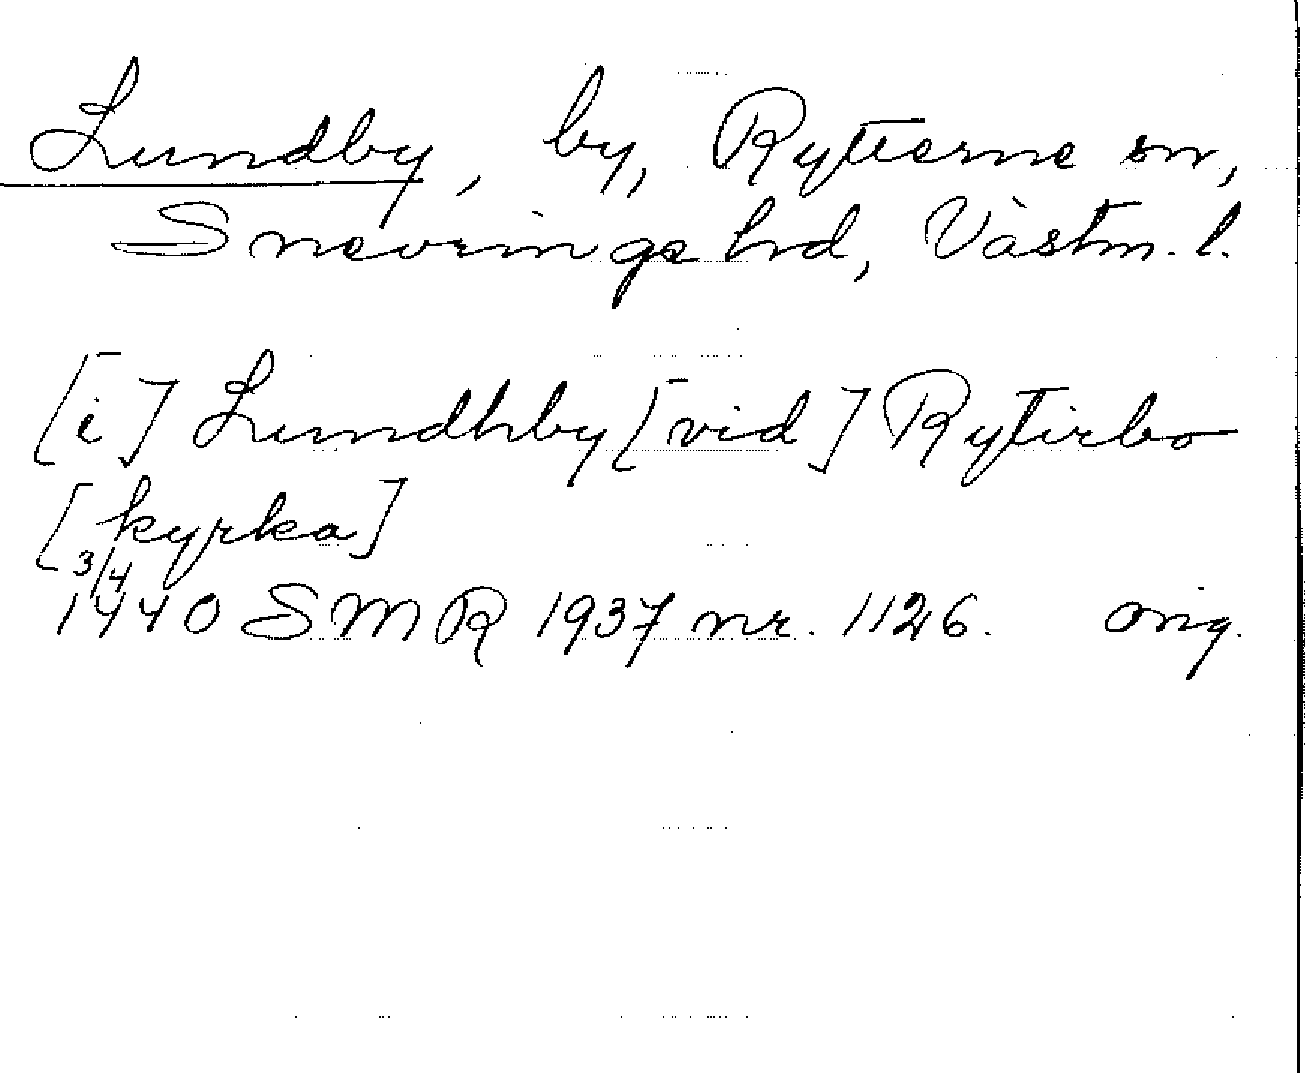 Lundby, by, Rytterne sn,
Snevringe hrd, Västm. l.
[i] Lundhby [vid] Rytirbo
[kyrka]
3/4
1440 SMR 1937 nr. 1126. orig.